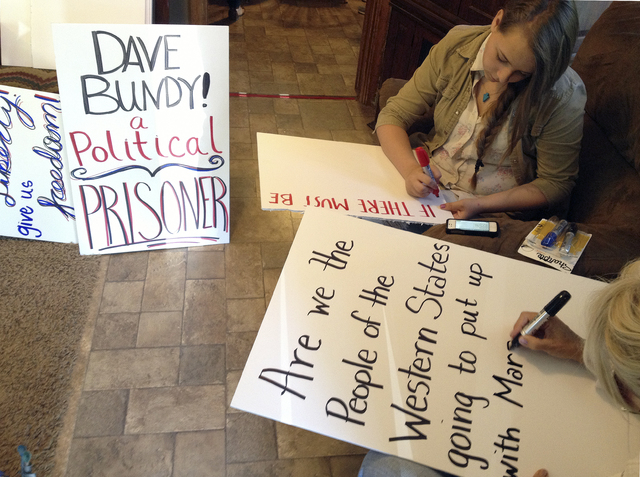 Liberty!
give us
freedom!
DAVE
BUNDY!
a
Political
PRISONER
IF THERE MUST BE
Sharpie
Are we the
People of the
Western States
going to put up
with Mar